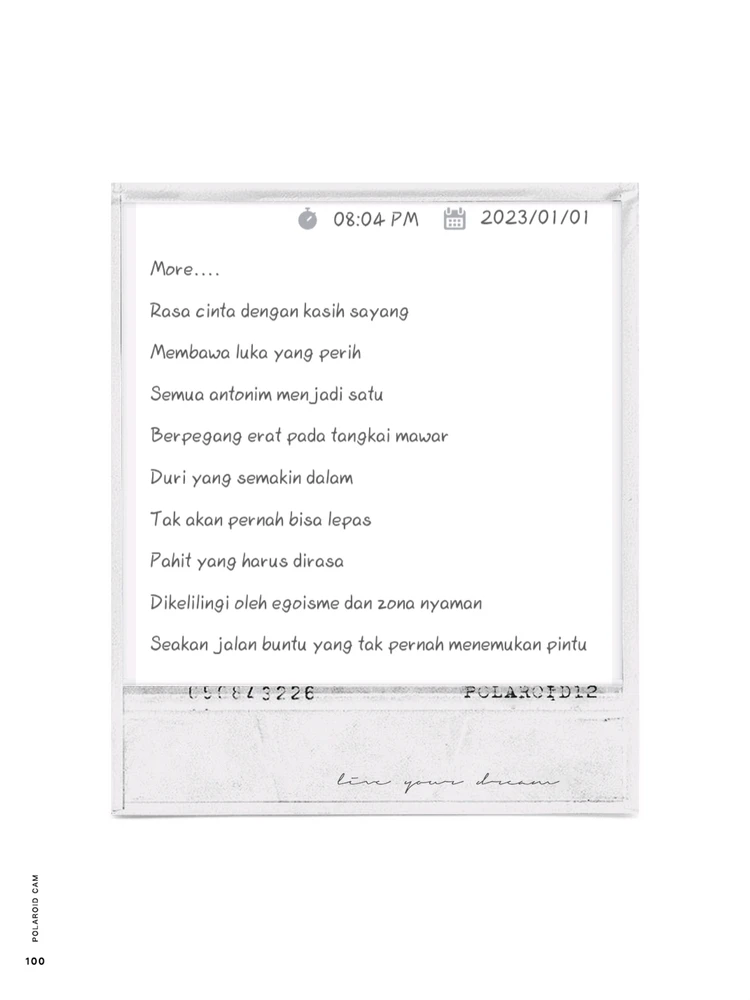 08:04 PM 2023/01/01
More....
Rasa cinta dengan kasih sayang
Membawa luka yang perih
Semua antonim menjadi satu
Berpegang erat pada tangkai mawar
Duri yang semakin dalam
Tak akan pernah bisa lepas
Pahit yang harus dirasa
Dikelilingi oleh egoisme dan zona nyaman
Seakan jalan buntu yang tak pernah menemukan pintu
POLAROID12
live your dream
POLAROID CAM
100